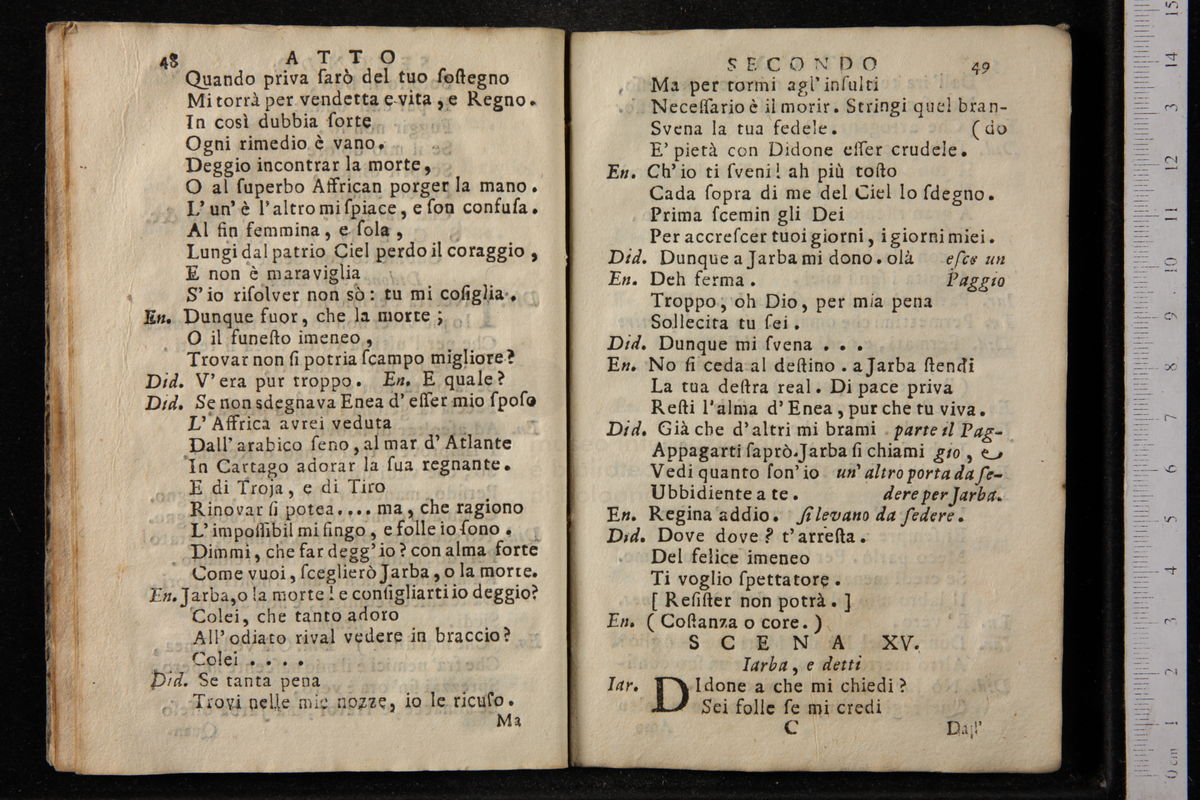 48 ATTO
Quando priva ſarò del tuo ſoſtegno
Mi torrà per vendetta e vita, e Regno.
In così dubbia ſorte
Ogni rimedio è vano.
Deggio incontrar la morte,
O al ſuperbo Affrican porger la mano.
L' un' è l'altro mi ſpiace, e ſon confuſa.
Al fin femmina, e ſola,
Lungi dal patrio Ciel perdo il coraggio,
E non è maraviglia
S' io riſolver non sò: tu mi coſiglia.
En. Dunque fuor, che la morte;
O il funeſto imeneo,
Trovar non ſi potria ſcampo migliore?
Did. V' era pur troppo. En. E quale?
Did. Se non sdegnava Enea d' eſſer mio ſpoſo
L' Affrica avrei veduta
Dall' arabico ſeno, al mar d' Atlante
In Cartago adorar la ſua regnante.
E di Troja, e di Tiro
Rinovar ſi potea.... ma, che ragiono
L' impoſſibil mi fingo, e folle io ſono.
Dimmi, che far degg' io? con alma forte
Come vuoi, ſceglierò Jarba, o la morte.
En. Jarba, o la morte! e conſigliarti io deggio?
Colei, che tanto adoro
All' odiato rival vedere in braccio?
Colei . . . .
Did. Se tanta pena
Trovi nelle mie nozze, io le ricuſo.
Ma
SECONDO 49
Ma per tormi agl' inſulti
Neceſſario è il morir. Stringi quel bran-
Svena la tua fedele. (do
E' pietà con Didone eſſer crudele.
En. Ch' io ti ſveni! ah più toſto
Cada ſopra di me del Ciel lo ſdegno.
Prima ſcemin gli Dei
Per accreſcer tuoi giorni, i giorni miei.
Did. Dunque a Jarba mi dono. olà eſce un
En. Deh ferma. Paggio
Troppo, oh Dio, per mia pena
Sollecita tu ſei.
Did. Dunque mi ſvena . . .
En. No ſi ceda al deſtino. a Jarba ſtendi
La tua deſtra real. Di pace priva
Reſti l'alma d' Enea, pur che tu viva.
Did. Già che d'altri mi brami parte il Pag-
Appagarti ſaprò. Jarba ſi chiami gio, &
Vedi quanto ſon' io un' altro porta da ſe-
Ubbidiente a te. dere per Jarba.
En. Regina addio. ſi levano da ſedere.
Did. Dove dove? t'arreſta.
Del felice imeneo
Ti voglio ſpettatore.
[ Reſiſter non potrà. ]
En. ( Coſtanza o core. )
SCENA XV.
Iarba, e detti
Iar. DIdone a che mi chiedi?
Sei folle ſe mi credi
C Dall'
0 cm 1 2 3 4 5 6 7 8 9 10 11 12 13 14 15